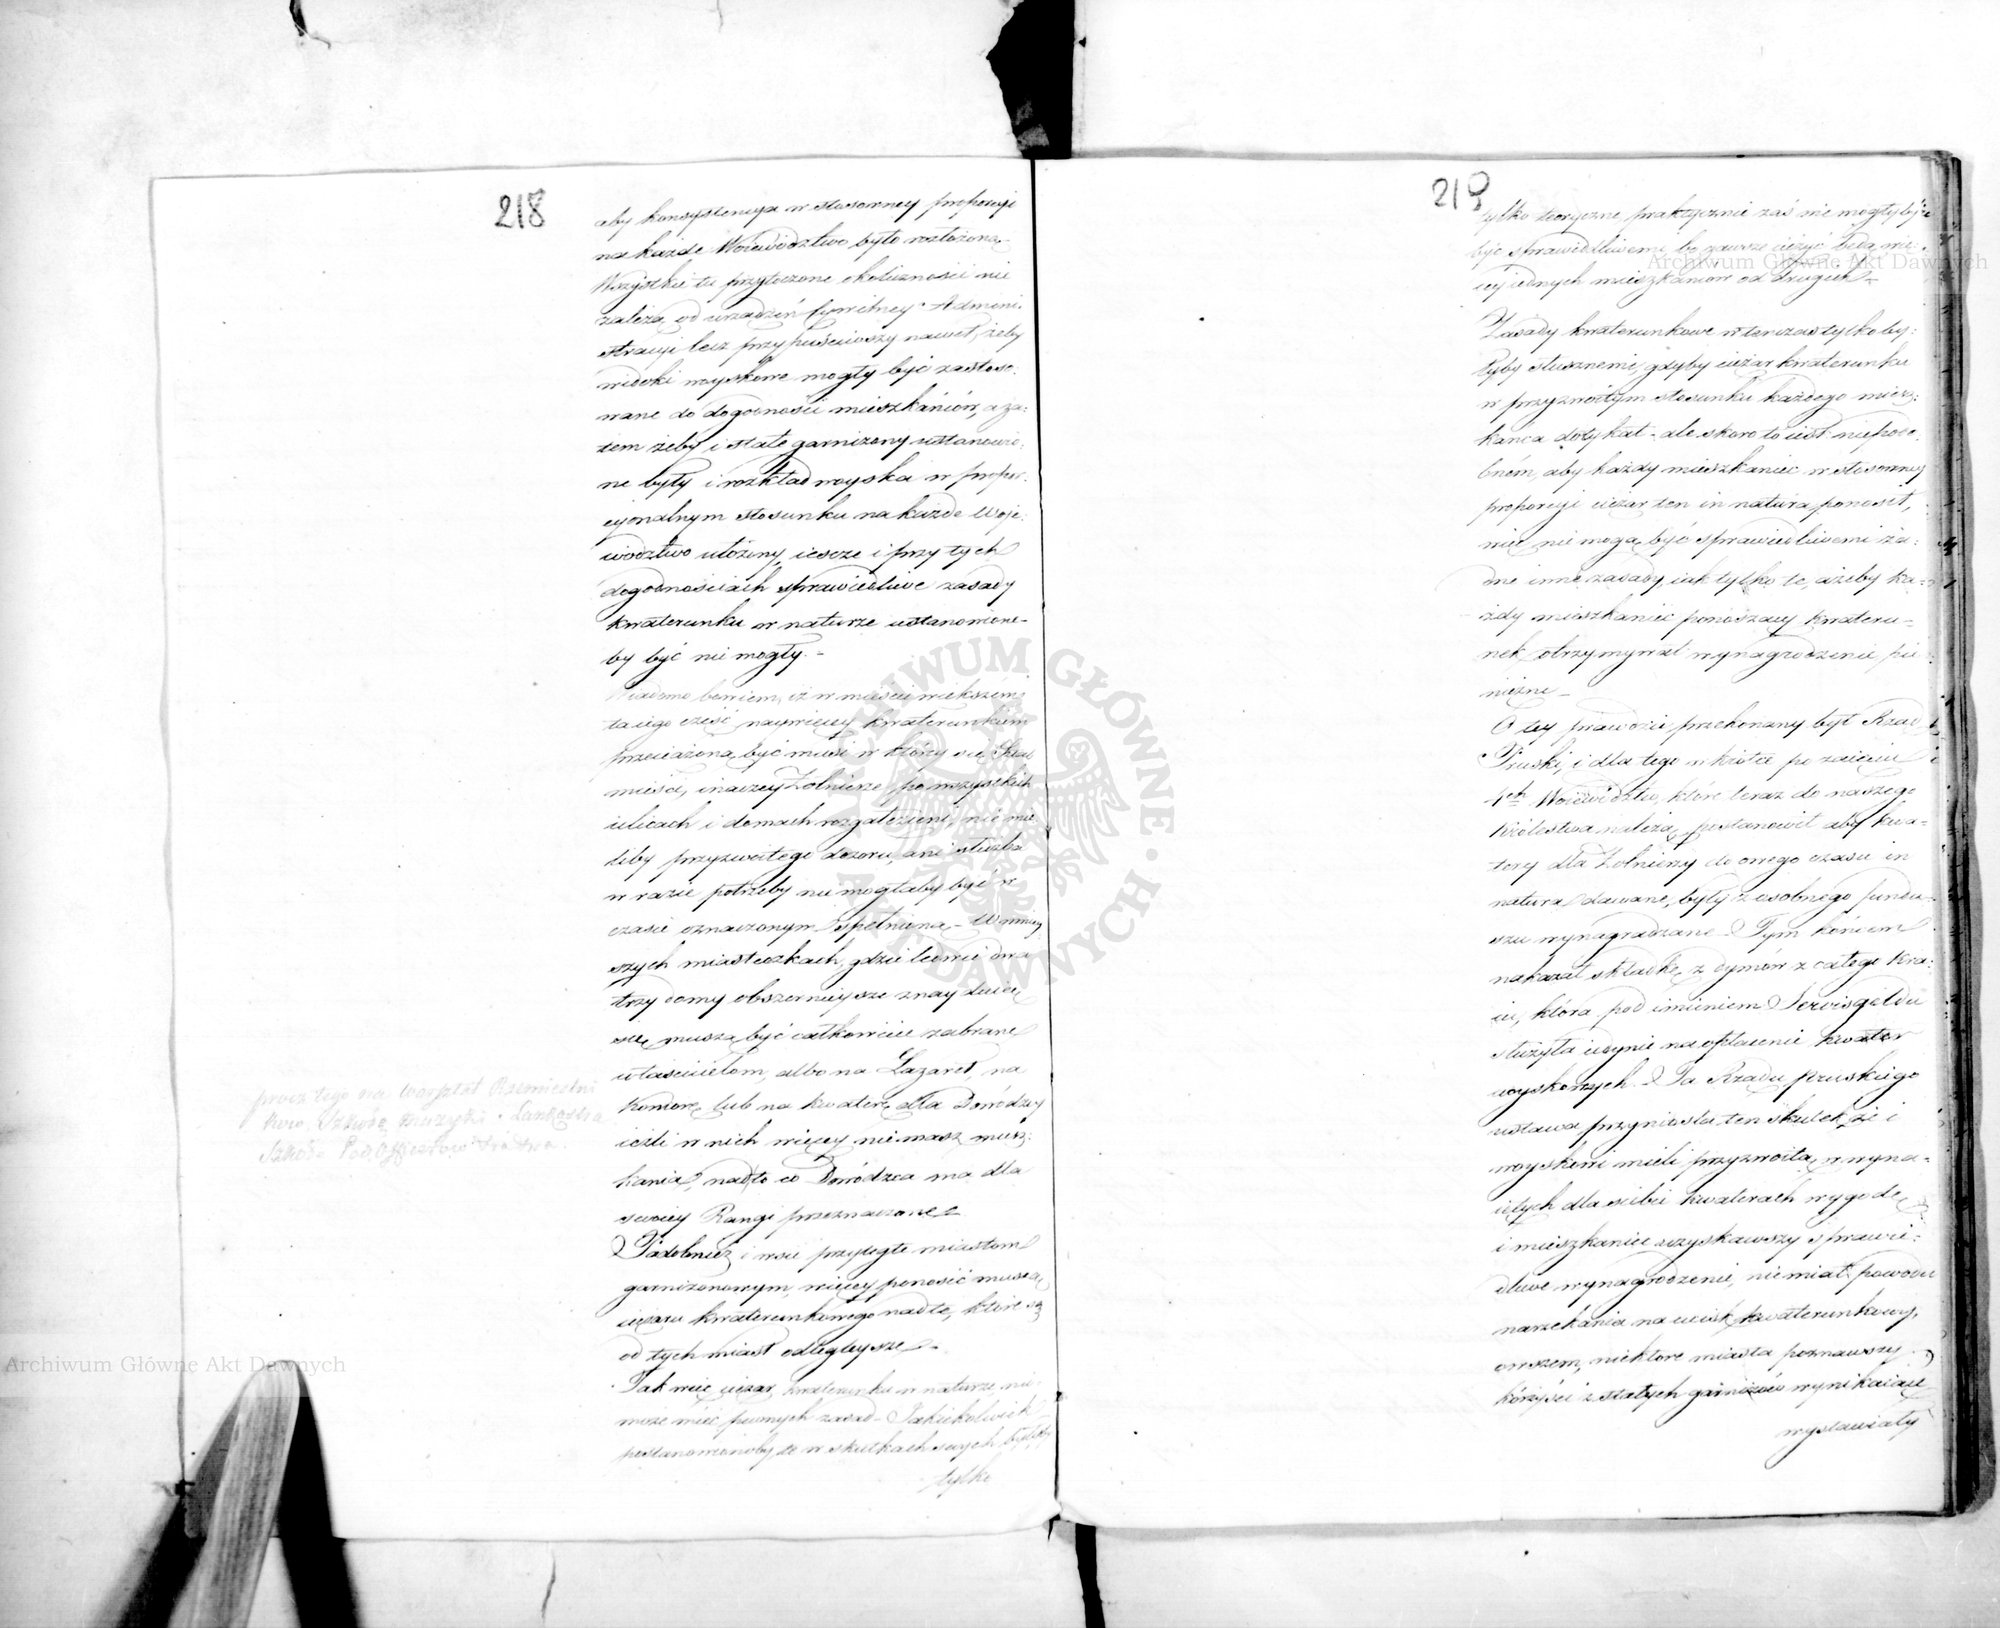 218
aby konsystencya w stosowney proporcyi
na każde Woiewództwo było rozłożoną.
Wszystkie te przytoczone okoliczności nie
zależą od urządzeń Cywilney Admini-
stracyi lecz przypuściwszy nawet, żeby
widoki woyskowe mogły być zastoso-
wane do dogodności mieszkańców, a za-
tem żeby i stałe garnizony ustanowio-
ne były i rozkład woyska w propor-
cyonalnym stosunku na każde Woje-
wództwo ułożony, ieszcze i przy tych
dogodnościach sprawiedliwe zasady
kwaterunku w naturze ustanowione-
by być nie mogły. -
Wiadomo bowiem, iż w mieście większém
ta iego część naywięcey kwaterunkiem
przeciążoną być musi w którey się
mieści, inaczey Żołnierze po wszystkich
ulicach i domach rozgałęzieni, nie mie
liby przyzwoitego dozoru, ani służba
w razie potrzeby nie mogłaby być w
czasie oznaczonym spełniona, - W mniey
szych miasteczkach, gdzie ledwie dwa
trzy domy obszernieysze znayduią
się, muszą być całkowicie zabrane
właścicielom, albo na Lazaret, na
komorę, lub na kwaterę dla Dowódzcy
ieżli w nich więcey nie masz miesz-
kania, nadto co Dowódzca ma dla
swoiey Rangi przeznaczone -
Podobnież i wsie przyległe miastom
garnizonowym więcey ponosić muszą
ciężaru kwaterunkowego nad te, które są
od tych miast odlegleysze -
Tak więc ciężar kwaterunku w naturze nie
może mieć pewnych zasad - Jakiekolwiek
postanowionoby, te w skutkach swych byłyby
tylko
procz tego na warsztat Rzemieślni
kow, Szkołę muzyki, Lankastra
Szkołę Podofficerow
219
tylko teoryczne praktycznie zaś nie mogłyby
być sprawiedliwemi, bo zawsze ciężyć będą wię-
cey iednych mieszkańców od drugich -
Zasady kwaterunkowe wtenczas tylko by-
łyby słusznemi, gdyby ciężar kwaterunku
w przyzwoitym stosunku każdego miesz-
kańca dotykał - ale skoro to iest niepodo-
bném, aby każdy mieszkaniec w stosowney
proporcyi ciężar ten in natura ponosił,
więc nie mogą być sprawiedliwemi ża-
dne inne zasady, iak tylko te, ażeby ka-
żdy mieszkaniec ponoszący kwateru-
nek otrzymywał wynagrodzenie pie
niężne -
O tey prawdzie przekonany był Rząd
Pruski, i dla tego wkrótce po zaięciu
4ch Woiewództw, które teraz do naszego
Królestwa należą, postanowił aby kwa-
tery dla Żołnierzy do onego czasu in
natura dawane, były z osobnego fundu-
szu wynagradzane - Tym końcem
nakazał składkę z dymów z całego kra-
iu, która pod imieniem Serwisgeldu
służyła iedynie na opłacenie kwater
woyskowych. - Ta Rządu pruskiego
ustawa przyniosła ten skutek że i
woyskowi mieli przyzwoitą w wyna-
iętych dla siebie kwaterach wygodę,
i mieszkańce uzyskawszy sprawie-
dliwe wynagrodzenie, nie miał powodu
narzekania na ucisk kwaterunkowy,
owszem, niektóre miasta poznawszy
korzyści z stałych garnizonów wynikaiące
wystawiały
Archiwum Główne Akt Dawnych
Archiwum Główne Akt Dawnych
ARCHIWUM GŁÓWNE AKT DAWNYCH